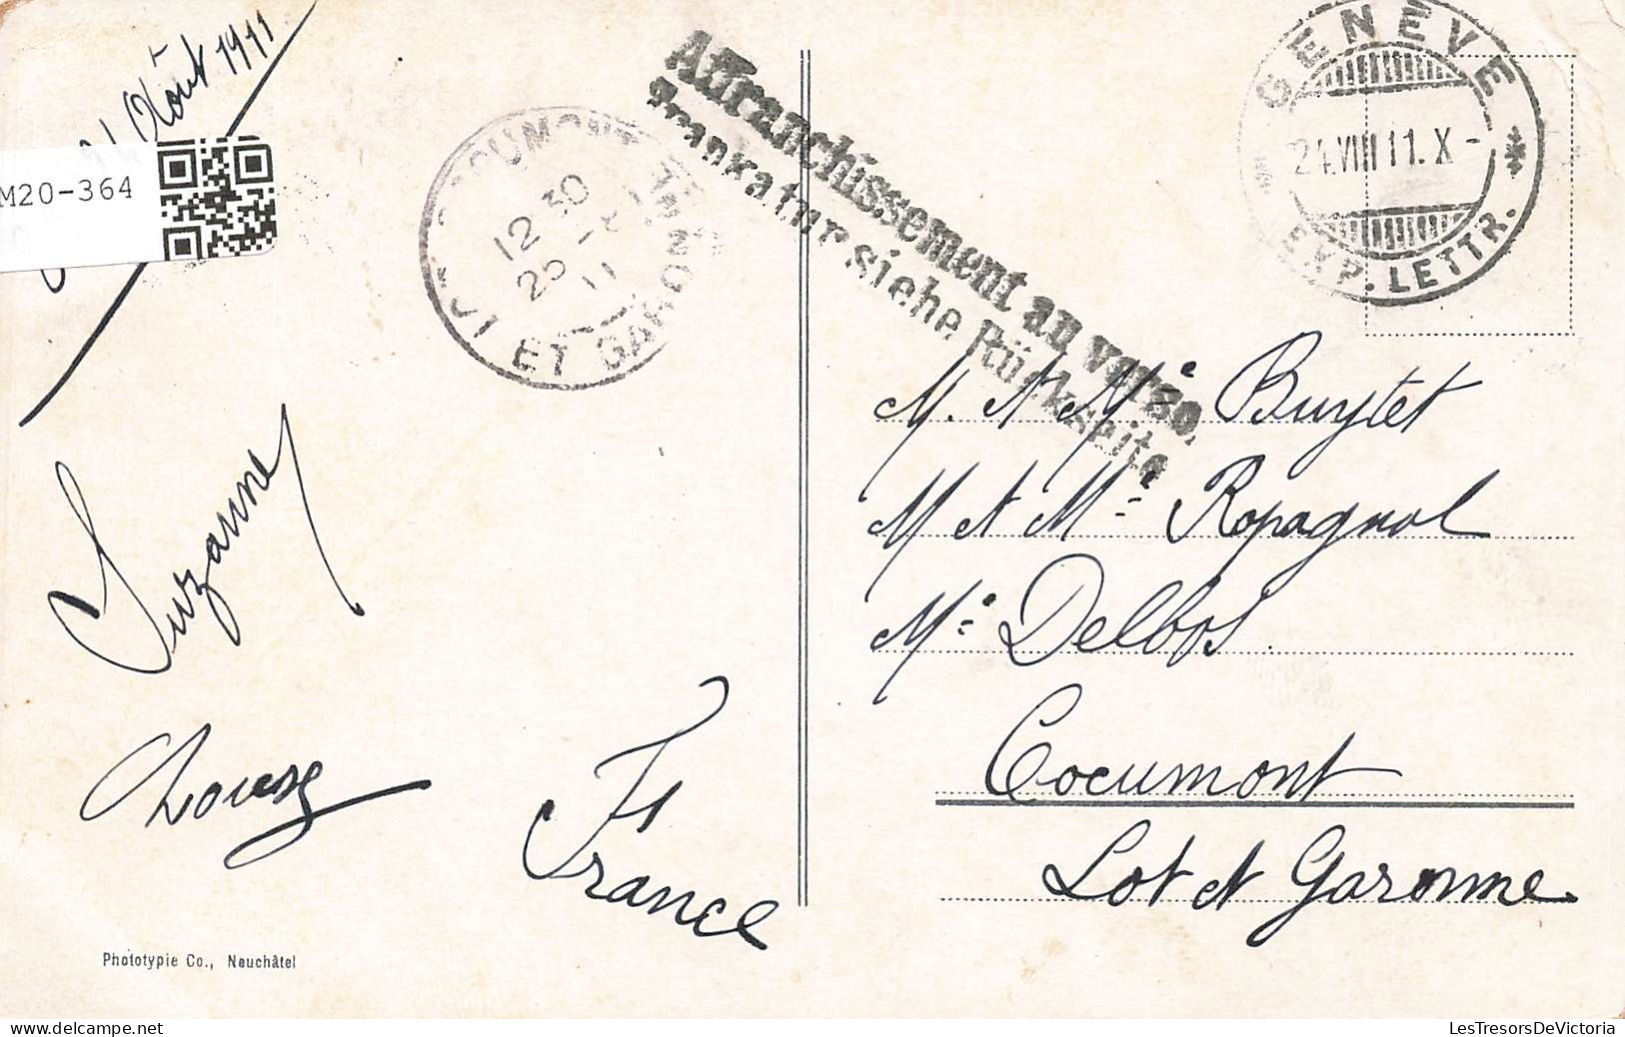 Août 1911
M20-364
Suzanne
France
Phototypie Co., Neuchâtel
COCUMONT
12 30
25 -8
11
LOT ET GARONNE
Affranchissement au verso.
Frankatur siehe Rückseite
GENÈVE
24.VIII 11. X -
EXP. LETTR.
M. et Mᵉ Buytet
M et Mᵉ Ropagnol
Mᵉ Delbos
Cocumont
Lot et Garonne
LesTresorsDeVictoria
www.delcampe.net